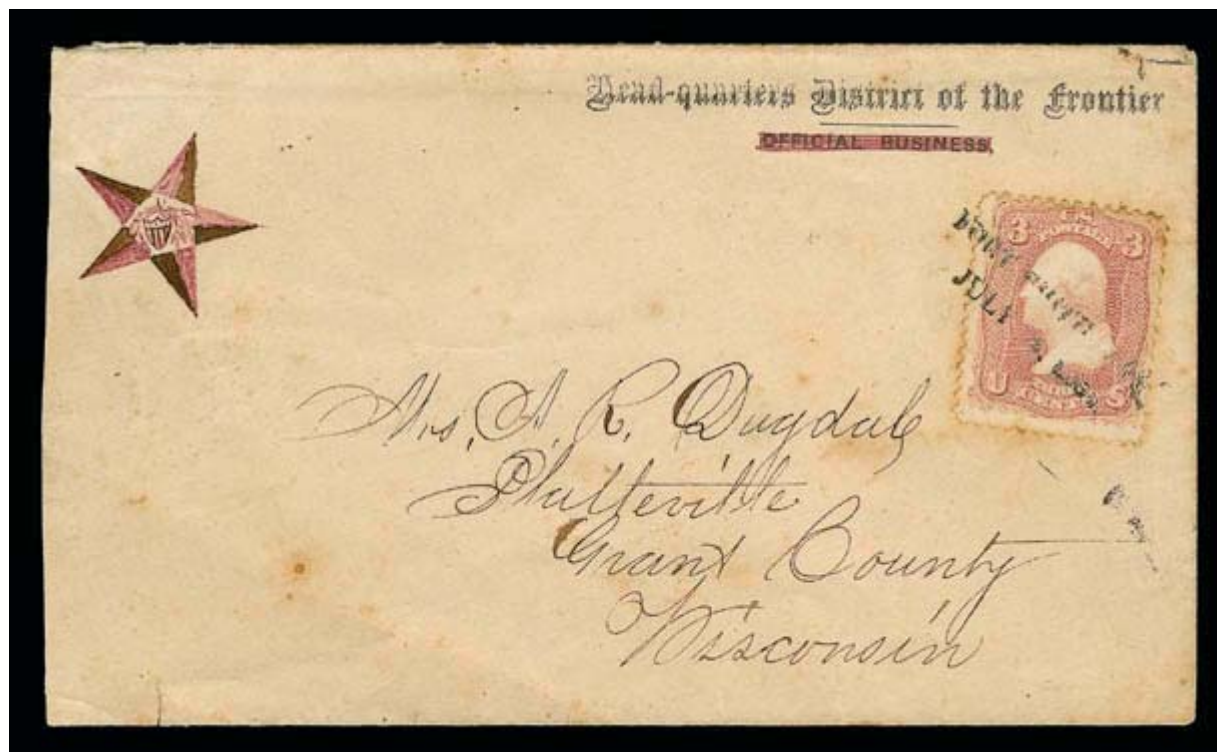 Head-quarters District of the Frontier
OFFICIAL BUSINESS,
3 3
JULY
U S
Mrs. A. R. Dugdale
Platteville
Grant County
Wisconsin